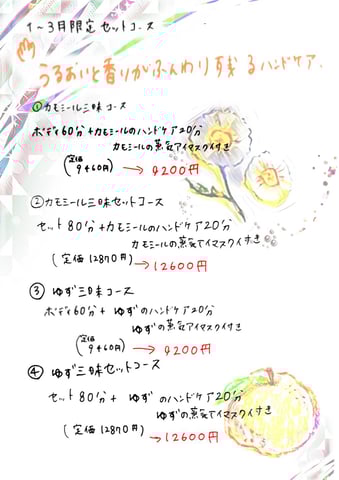 1~3月限定セットコース
うるおいと香りがふんわり残るハンドケア.
①カモミール三昧コース
ボディ60分+カモミールのハンドケア20分
カモミールの蒸気アイマスク付き
(定価 9460円) → 9200円
②カモミール三昧セットコース
セット80分+カモミールのハンドケア20分
カモミールの蒸気アイマスク付き
(定価 12870円) → 12600円
③ ゆず三昧コース
ボディ60分+ ゆずのハンドケア20分
ゆずの蒸気アイマスク付き
(定価 9460円) → 9200円
④ ゆず三昧セットコース
セット80分+ ゆずのハンドケア20分
ゆずの蒸気アイマスク付き
(定価 12870円) → 12600円